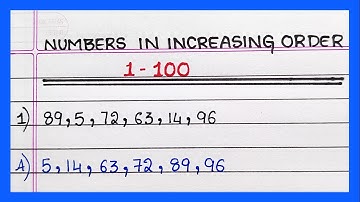 NUMBERS IN INCREASING ORDER
1 - 100
1) 89, 5, 72, 63, 14, 96
A) 5, 14, 63, 72, 89, 96